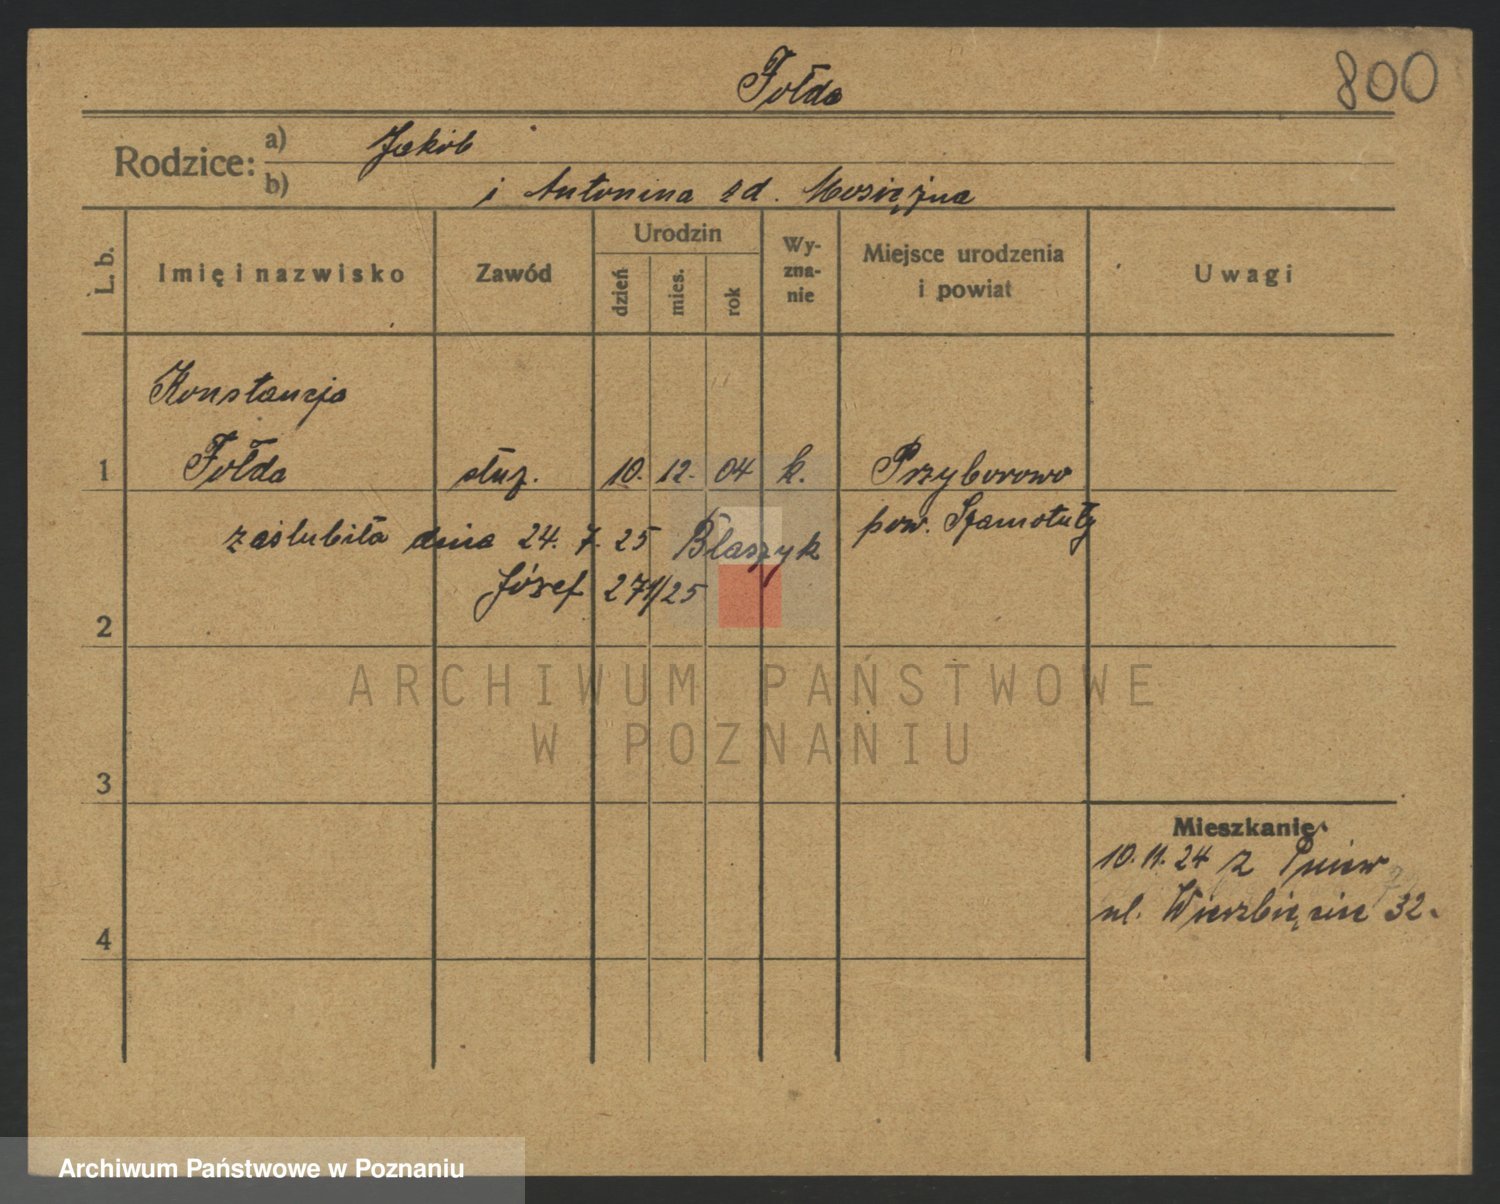 Fołda
800
Rodzice: a) Jakób
b) i Antonina zd. Mosiężna
L. b.
Imię i nazwisko
Zawód
Urodzin
dzień
mies.
rok
Wy-
zna-
nie
Miejsce urodzenia
i powiat
Uwagi
Konstancja
1 Fołda służ. 10. 12. 04 k. Przyborowo
pow. Szamotuły
zaślubiła dnia 24. 7. 25 Błaszyk
Józef 271/25
2
3
4
Mieszkanie
10. 11. 24 z Pniew
ul. Wierzbięcice 32.
ARCHIWUM PAŃSTWOWE
W POZNANIU
Archiwum Państwowe w Poznaniu